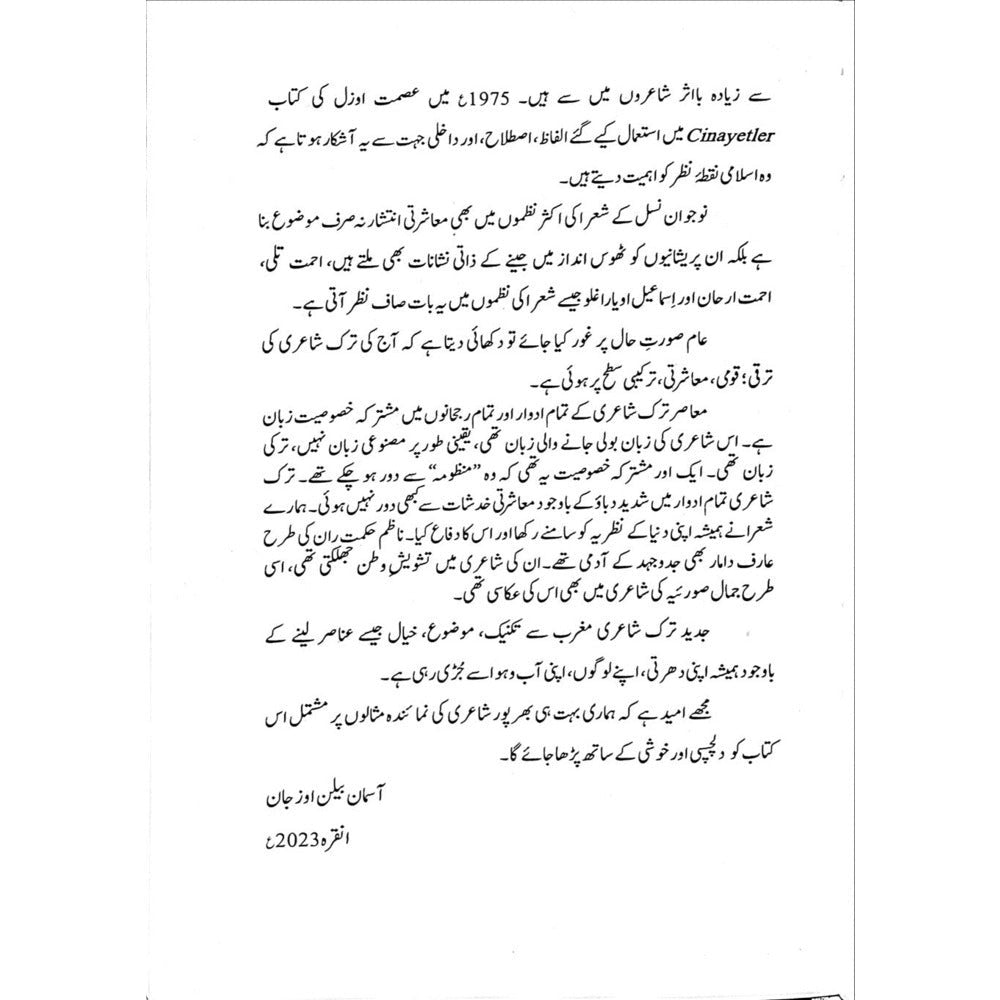 سے زیادہ بااثر شاعروں میں سے ہیں۔ 1975ع میں عصمت اوزل کی کتاب
Cinayetler میں استعمال کیے گئے الفاظ، اصطلاح، اور داخلی جہت سے یہ آشکار ہوتا ہے کہ
وہ اسلامی نقطۂ نظر کو اہمیت دیتے ہیں۔
نوجوان نسل کے شعرا کی اکثر نظموں میں بھی معاشرتی انتشار نہ صرف موضوع بنا
ہے بلکہ ان پریشانیوں کو ٹھوس انداز میں جینے کے ذاتی نشانات بھی ملتے ہیں، احمت تلی،
احمت ارحان اور اِسماعیل اویاراغلو جیسے شعرا کی نظموں میں یہ بات صاف نظر آتی ہے۔
عام صورتِ حال پر غور کیا جائے تو دکھائی دیتا ہے کہ آج کی ترک شاعری کی
ترقی؛ قومی، معاشرتی، ترکیبی سطح پر ہوئی ہے۔
معاصر ترک شاعری کے تمام ادوار اور تمام رجحانوں میں مشترکہ خصوصیت زبان
ہے۔ اس شاعری کی زبان بولی جانے والی زبان تھی، یقینی طور پر مصنوعی زبان نہیں، ترکی
زبان تھی۔ ایک اور مشترکہ خصوصیت یہ تھی کہ وہ ”منظومہ“ سے دور ہو چکے تھے۔ ترک
شاعری تمام ادوار میں شدید دباؤ کے باوجود معاشرتی خدشات سے کبھی دور نہیں ہوئی۔ ہمارے
شعرا نے ہمیشہ اپنی دنیا کے نظریہ کو سامنے رکھا اور اس کا دفاع کیا۔ ناظم حکمت ران کی طرح
عارف دامار بھی جدوجہد کے آدمی تھے۔ ان کی شاعری میں تشویشِ وطن جھلکتی تھی، اسی
طرح جمال صورئیہ کی شاعری میں بھی اس کی عکاسی تھی۔
جدید ترک شاعری مغرب سے تکنیک، موضوع، خیال جیسے عناصر لینے کے
باوجود ہمیشہ اپنی دھرتی، اپنے لوگوں، اپنی آب و ہوا سے جُڑی رہی ہے۔
مجھے امید ہے کہ ہماری بہت ہی بھرپور شاعری کی نمائندہ مثالوں پر مشتمل اس
کتاب کو دلچسپی اور خوشی کے ساتھ پڑھا جائے گا۔
آسمان بیلن اوز جان
انقرہ 2023ع